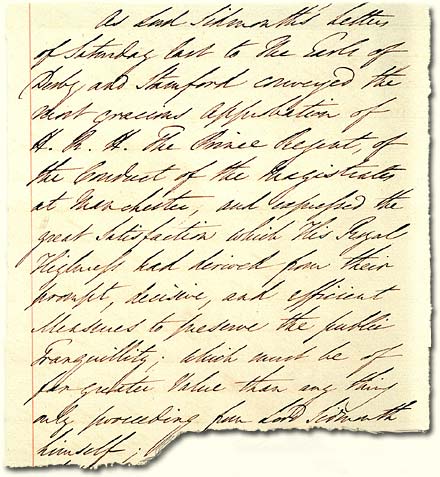 As Lord Sidmouth's Letters
of Saturday last to the Earls of
Derby and Stamford conveyed the
most gracious Approbation of
H. R. H. The Prince Regent, of
the Conduct of the Magistrates
at Manchester, and expressed the
great Satisfaction which His Royal
Highness had derived from their
prompt, decisive, and efficient
Measures to preserve the public
Tranquillity; which must be of
far greater Value than any thing
only proceeding from Lord Sidmouth
himself;